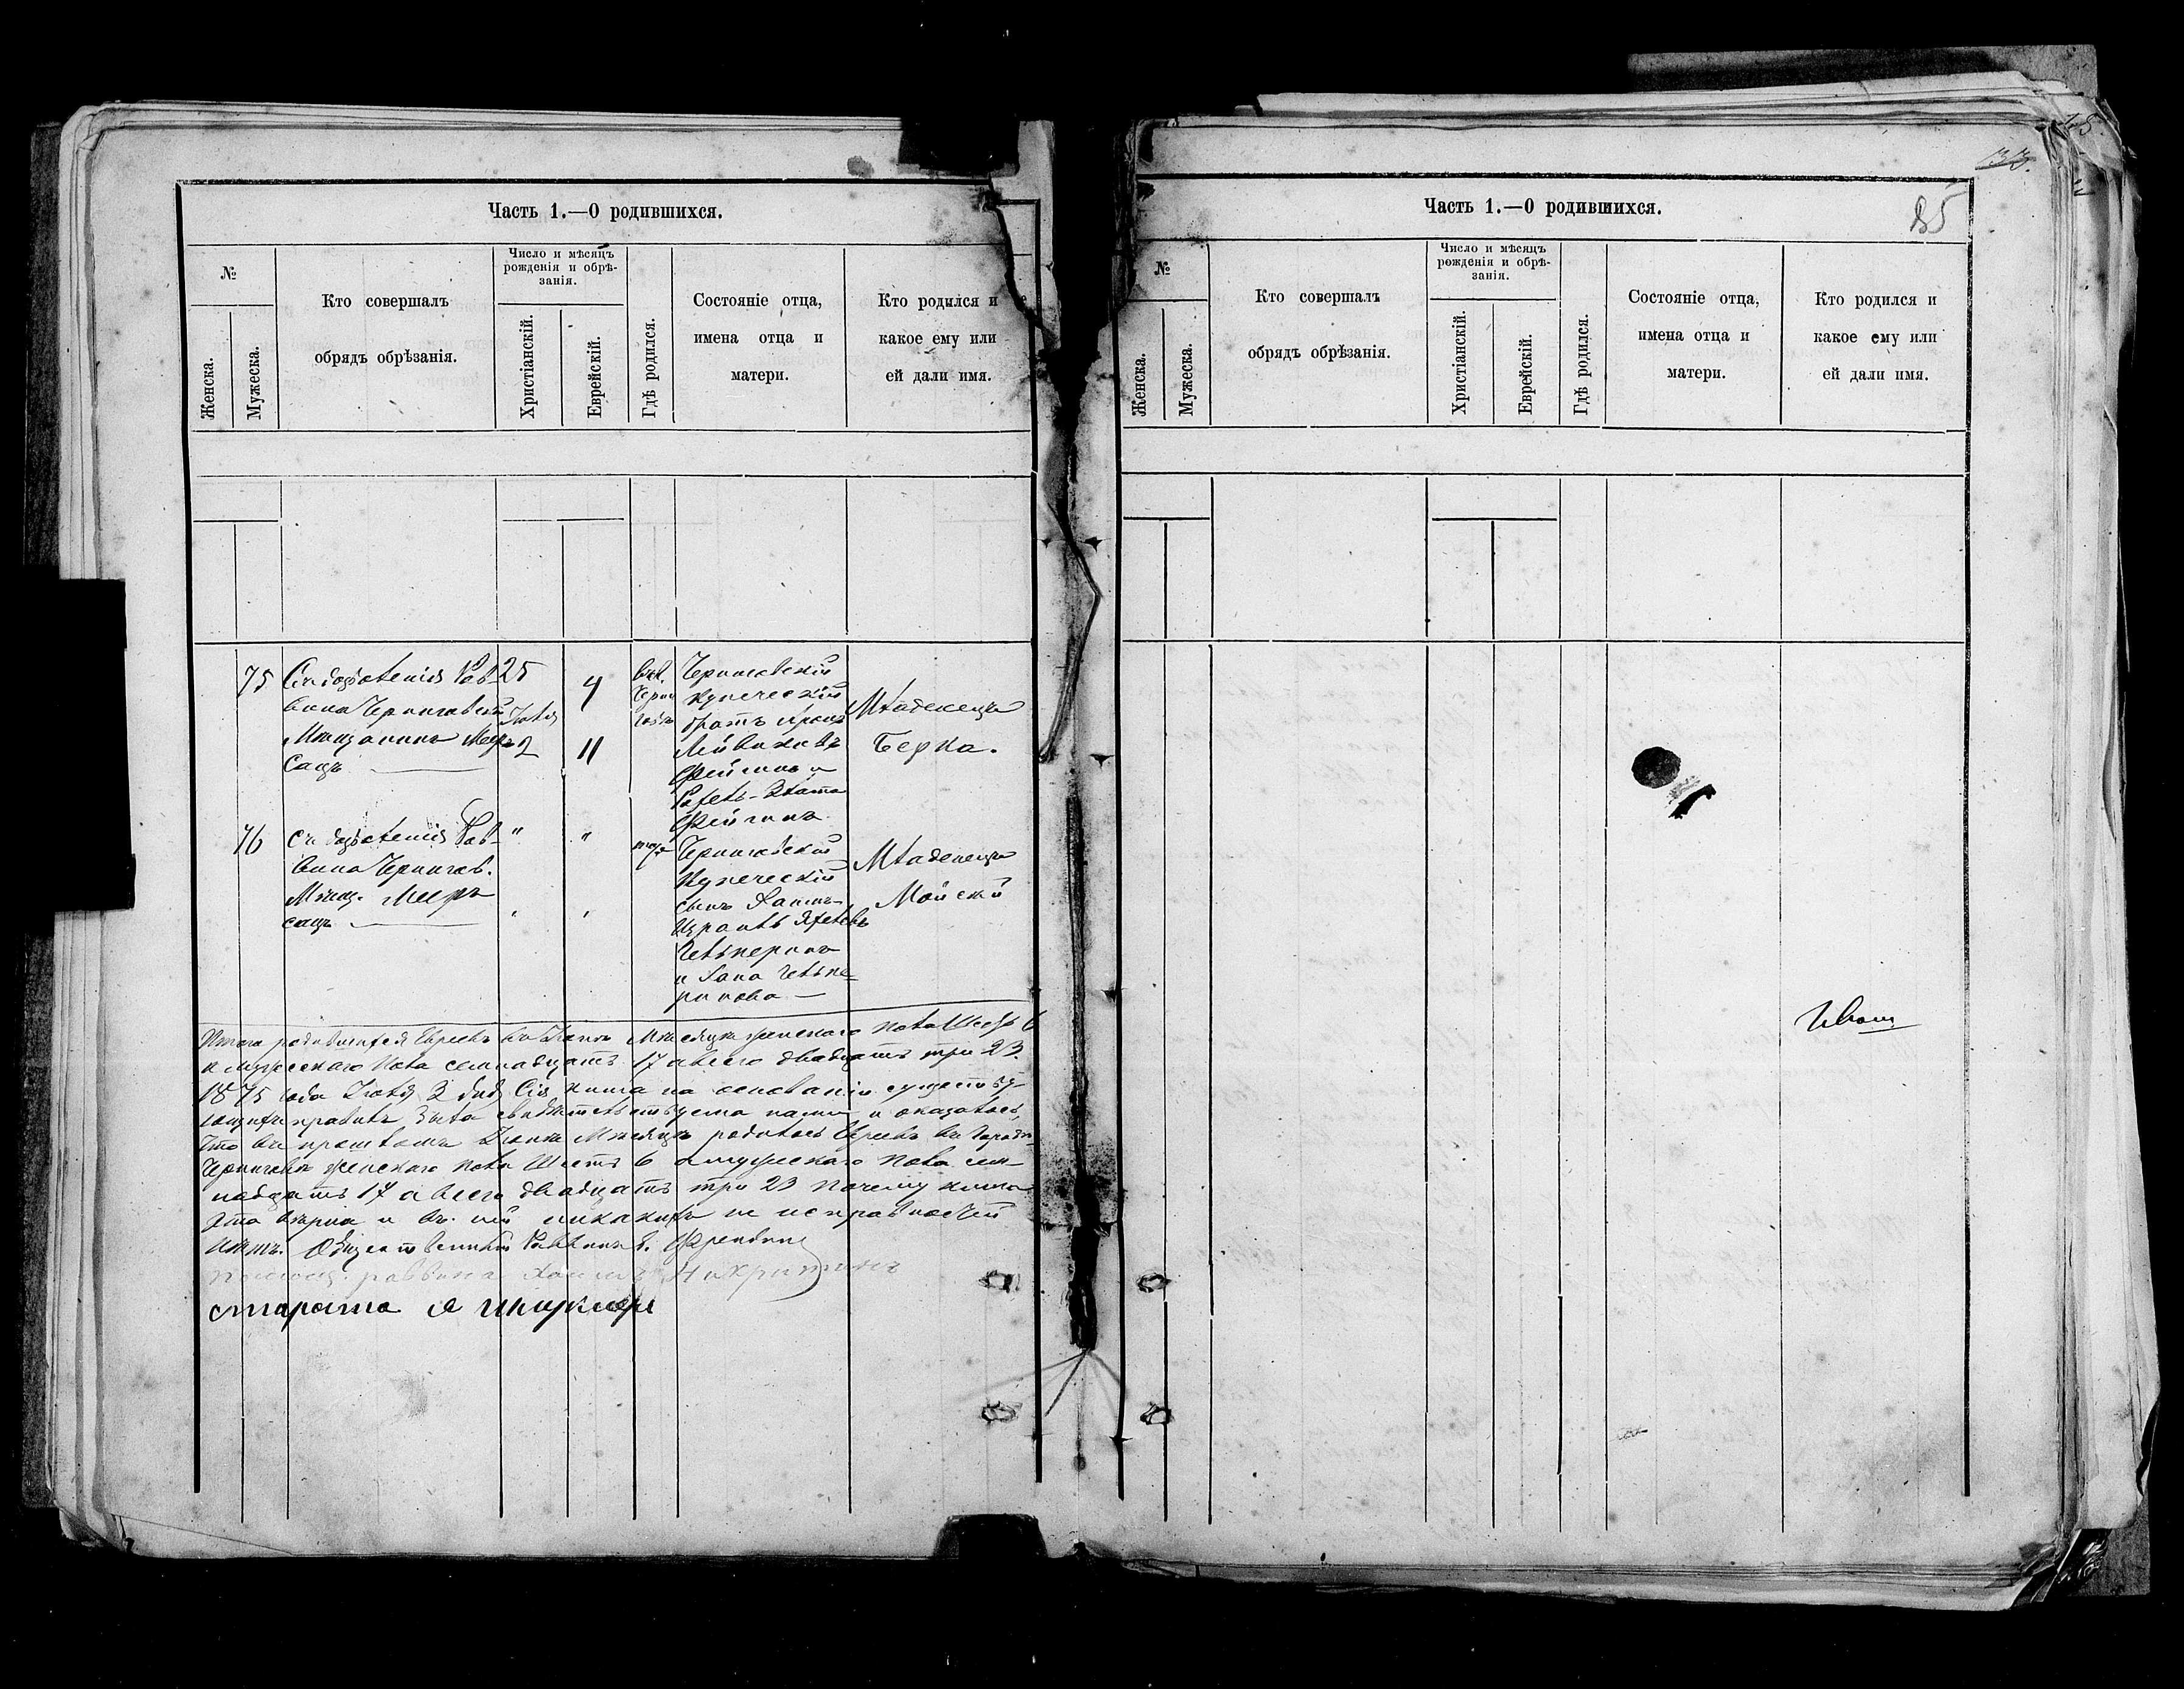 Часть 1.—О родившихся.
№
Женска.
Мужеска.
Кто совершалъ
обрядъ обрѣзанія.
Число и мѣсяцъ
рожденія и обрѣ-
занія.
Христіанскій.
Еврейскій.
Гдѣ родился.
Состояніе отца,
имена отца и
матери.
Кто родился и
какое ему или
ей дали имя.
75
Съ дозволенія Рав-
вина Черниговскій
Мѣщанинъ Мееръ
Сацъ
25
Іюня
2
4
11
въ г.
Черни
говѣ
Черниговскій
купеческій
братъ
Лейвиковъ
Фейгинъ и
Рохель-Злата
Фейгинъ
Младенецъ
Берка.
76
Съ дозволенія Рав-
вина Чернигов.
Мѣщ. Мееръ
сацъ
"
"
"
"
тоже
Черниговскій
Купеческій
сынъ Хаимъ-
Израиль
Чельнеринъ
и Хана Чельне-
ринова
Младенецъ
Мойсей
Итого родившихся Евреевъ въ Іюнѣ Мѣсяцѣ женскаго пола Шесть 6
и мужескаго пола семнадцать 17 а всего двадцать три 23.
1875 года Іюля 3 дня Сія книга на основаніи существу-
ющихъ правилъ была свидѣтельствуема нами и оказалось,
Что въ прошломъ Іюнѣ Мѣсяцѣ родилось Евреевъ въ городѣ
Черниговѣ женскаго пола Шесть 6 а мужескаго пола сем-
надцать 17 а всего двадцать три 23 почему книга
эта вѣрна и въ ней никакихъ не исправностей
нѣтъ. Общественный Раввинъ
Помощ. раввина Хаимъ
староста
Часть 1.—О родившихся.
85
№
Женска.
Мужеска.
Кто совершалъ
обрядъ обрѣзанія.
Число и мѣсяцъ
рожденія и обрѣ-
занія.
Христіанскій.
Еврейскій.
Гдѣ родился.
Состояніе отца,
имена отца и
матери.
Кто родился и
какое ему или
ей дали имя.